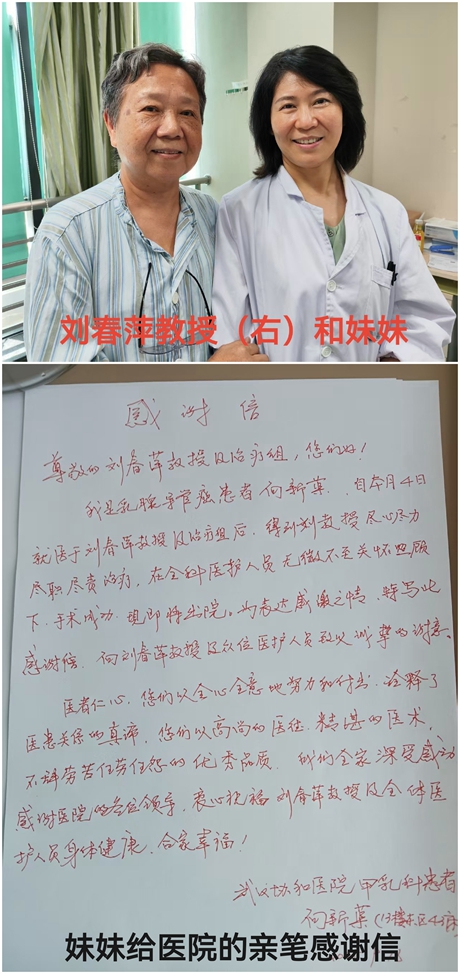 刘春萍教授（右）和妹妹
感谢信
尊敬的刘春萍教授及治疗组，您们好！
我是乳腺导管癌患者向新萊．自本月4日
就医于刘春萍教授及治疗组后．得到刘教授尽心尽力
尽职尽责治疗，在全科医护人员无微不至关怀照顾
下．手术成功．现即将出院。为表达感激之情．特写此
感谢信．向刘春萍教授及众位医护人员致以诚挚的谢意。
医者仁心，您们以全心全意地努力和付出．诠释了
医患关系的真谛．您们以高尚的医德．精湛的医术．
不辞劳苦任劳任怨的优秀品质．我们全家深受感动
感谢医院的各位领导，衷心祝福刘春萍教授及全体医
护人员身体健康．合家幸福！
武汉协和医院甲乳科患者
向新(13楼东区4床)
妹妹给医院的亲笔感谢信